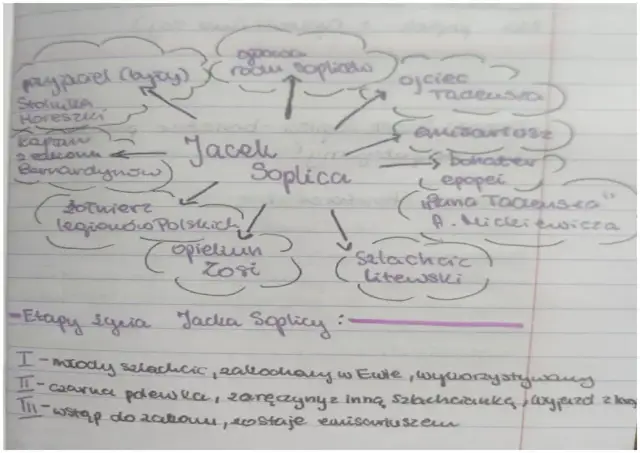 przyjaciel (były)
Stolnika
Horeszki
rodu Sopliców
ojciec
Tadeusza
emisariusz
bohater
epopei
"Pana Tadeusza"
A. Mickiewicza
szlachcic
litewski
opiekun
Zosi
żołnierz
legionów Polskich
kapłan
z zakonu
Bernardynów
Jacek
Soplica
- Etapy życia Jacka Soplicy :
I - młody szlachcic, zakochany w Ewie, wykorzystywany
II - czarna polewka, zaręczyny z inną szlachcianką, wyjazd z
III - wstąp do zakonu, zostaje emisariuszem